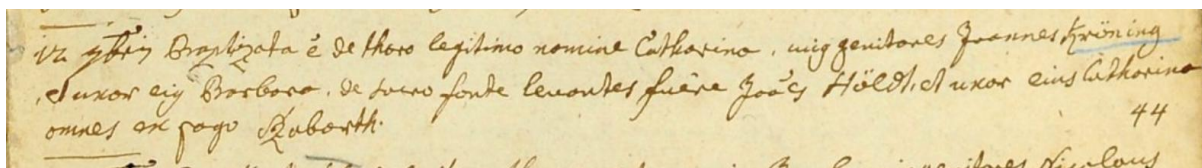 12 7bris Baptizata ē de thoro legitimo nomine Catharina, cuig genitores Joannes Kröning
et uxor eig Barbara, de sacro fonte levantes fuēre Joaēs Höldt, et uxor eius Catharina
omnes ex pago Rabarth.
44
genitores Nicolaus